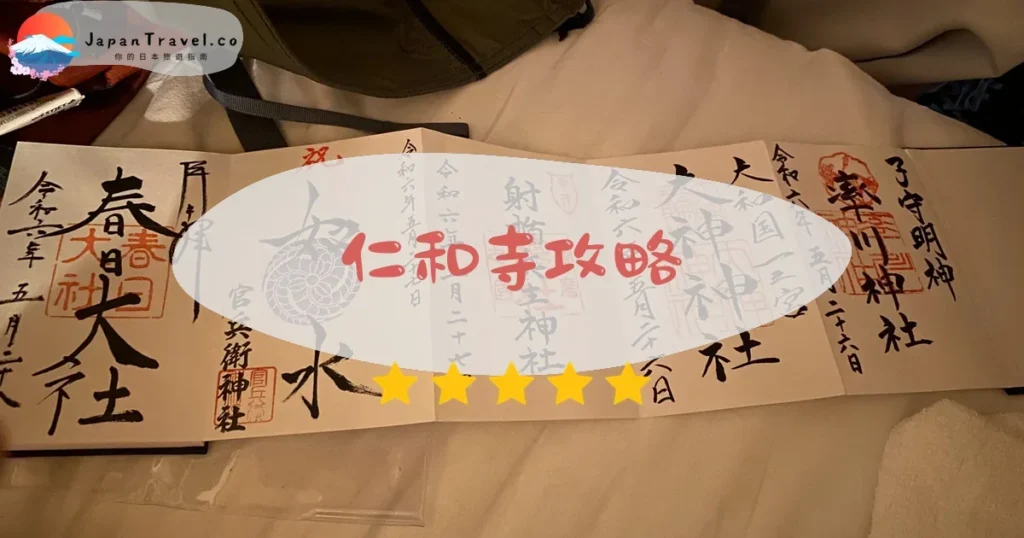 JapanTravel.co
你的日本旅遊指南
仁和寺攻略
子守明神
率川神社
令和六年五月二十六日
大和国一之宮
大神神社
令和六年五月二十六日
神社
令和六年五月二十七
祝
水
官兵衛神社
春日大社
春日大社
令和六年 五月二十